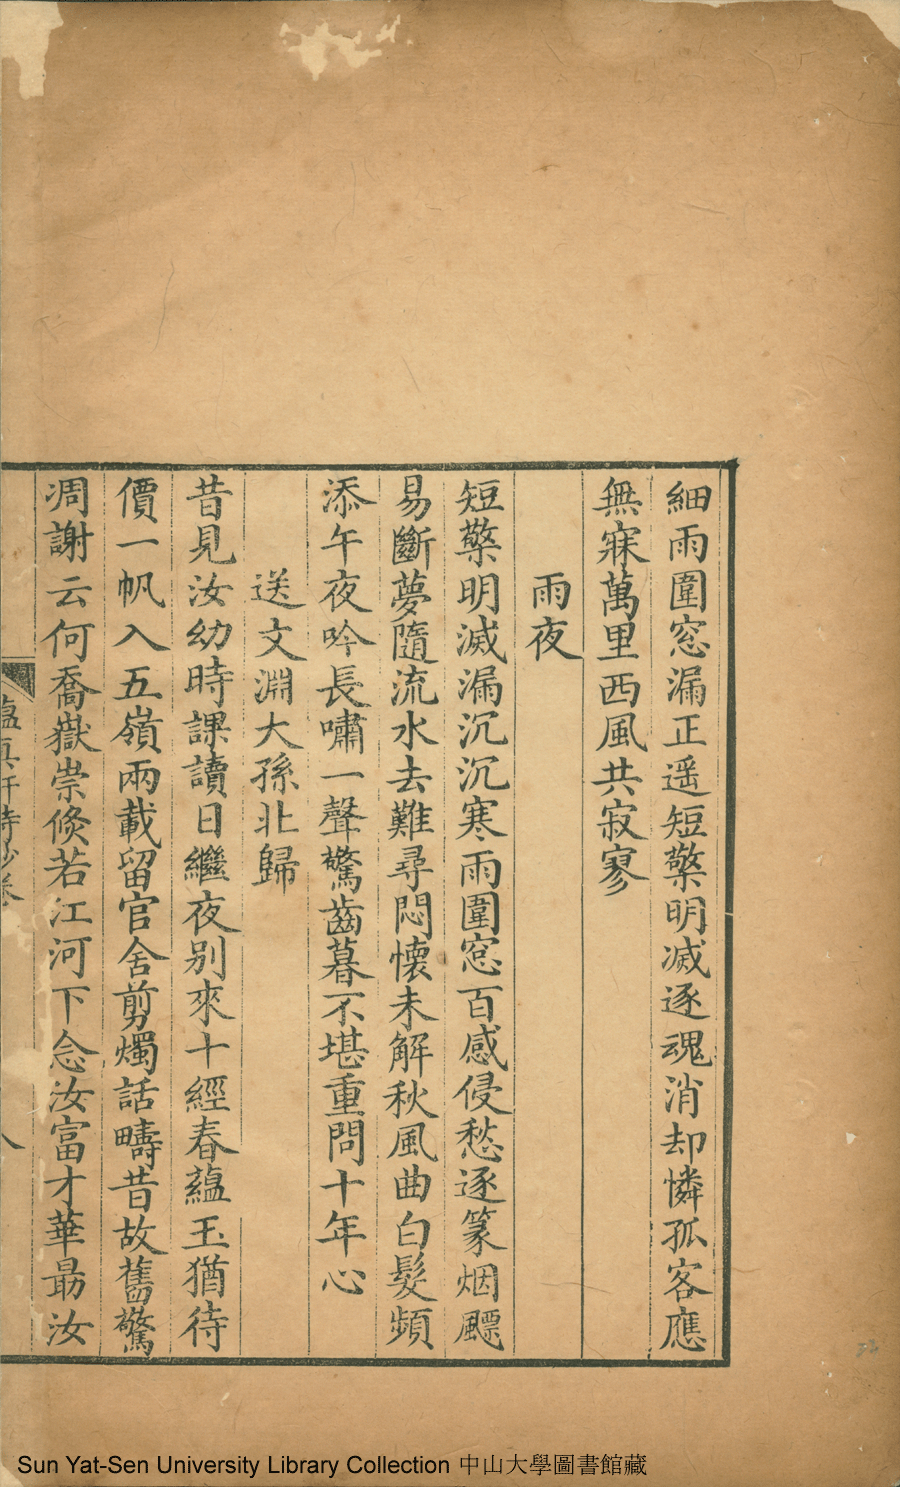 細雨圍窓漏正遥短檠明滅逐魂消却憐孤客應
無寐萬里西風共寂寥
雨夜
短檠明滅漏沉沉寒雨圍窓百感侵愁逐篆烟飄
易斷夢隨流水去難尋悶懷未解秋風曲白髮頻
添午夜吟長嘯一聲驚齒暮不堪重問十年心
送文淵大孫北歸
昔見汝幼時課讀日繼夜別來十經春藴玉猶待
價一帆入五嶺兩載留官舍剪燭話疇昔故舊驚
凋謝云何喬嶽崇倏若江河下念汝富才華最汝
八
Sun Yat-Sen University Library Collection 中山大學圖書館藏